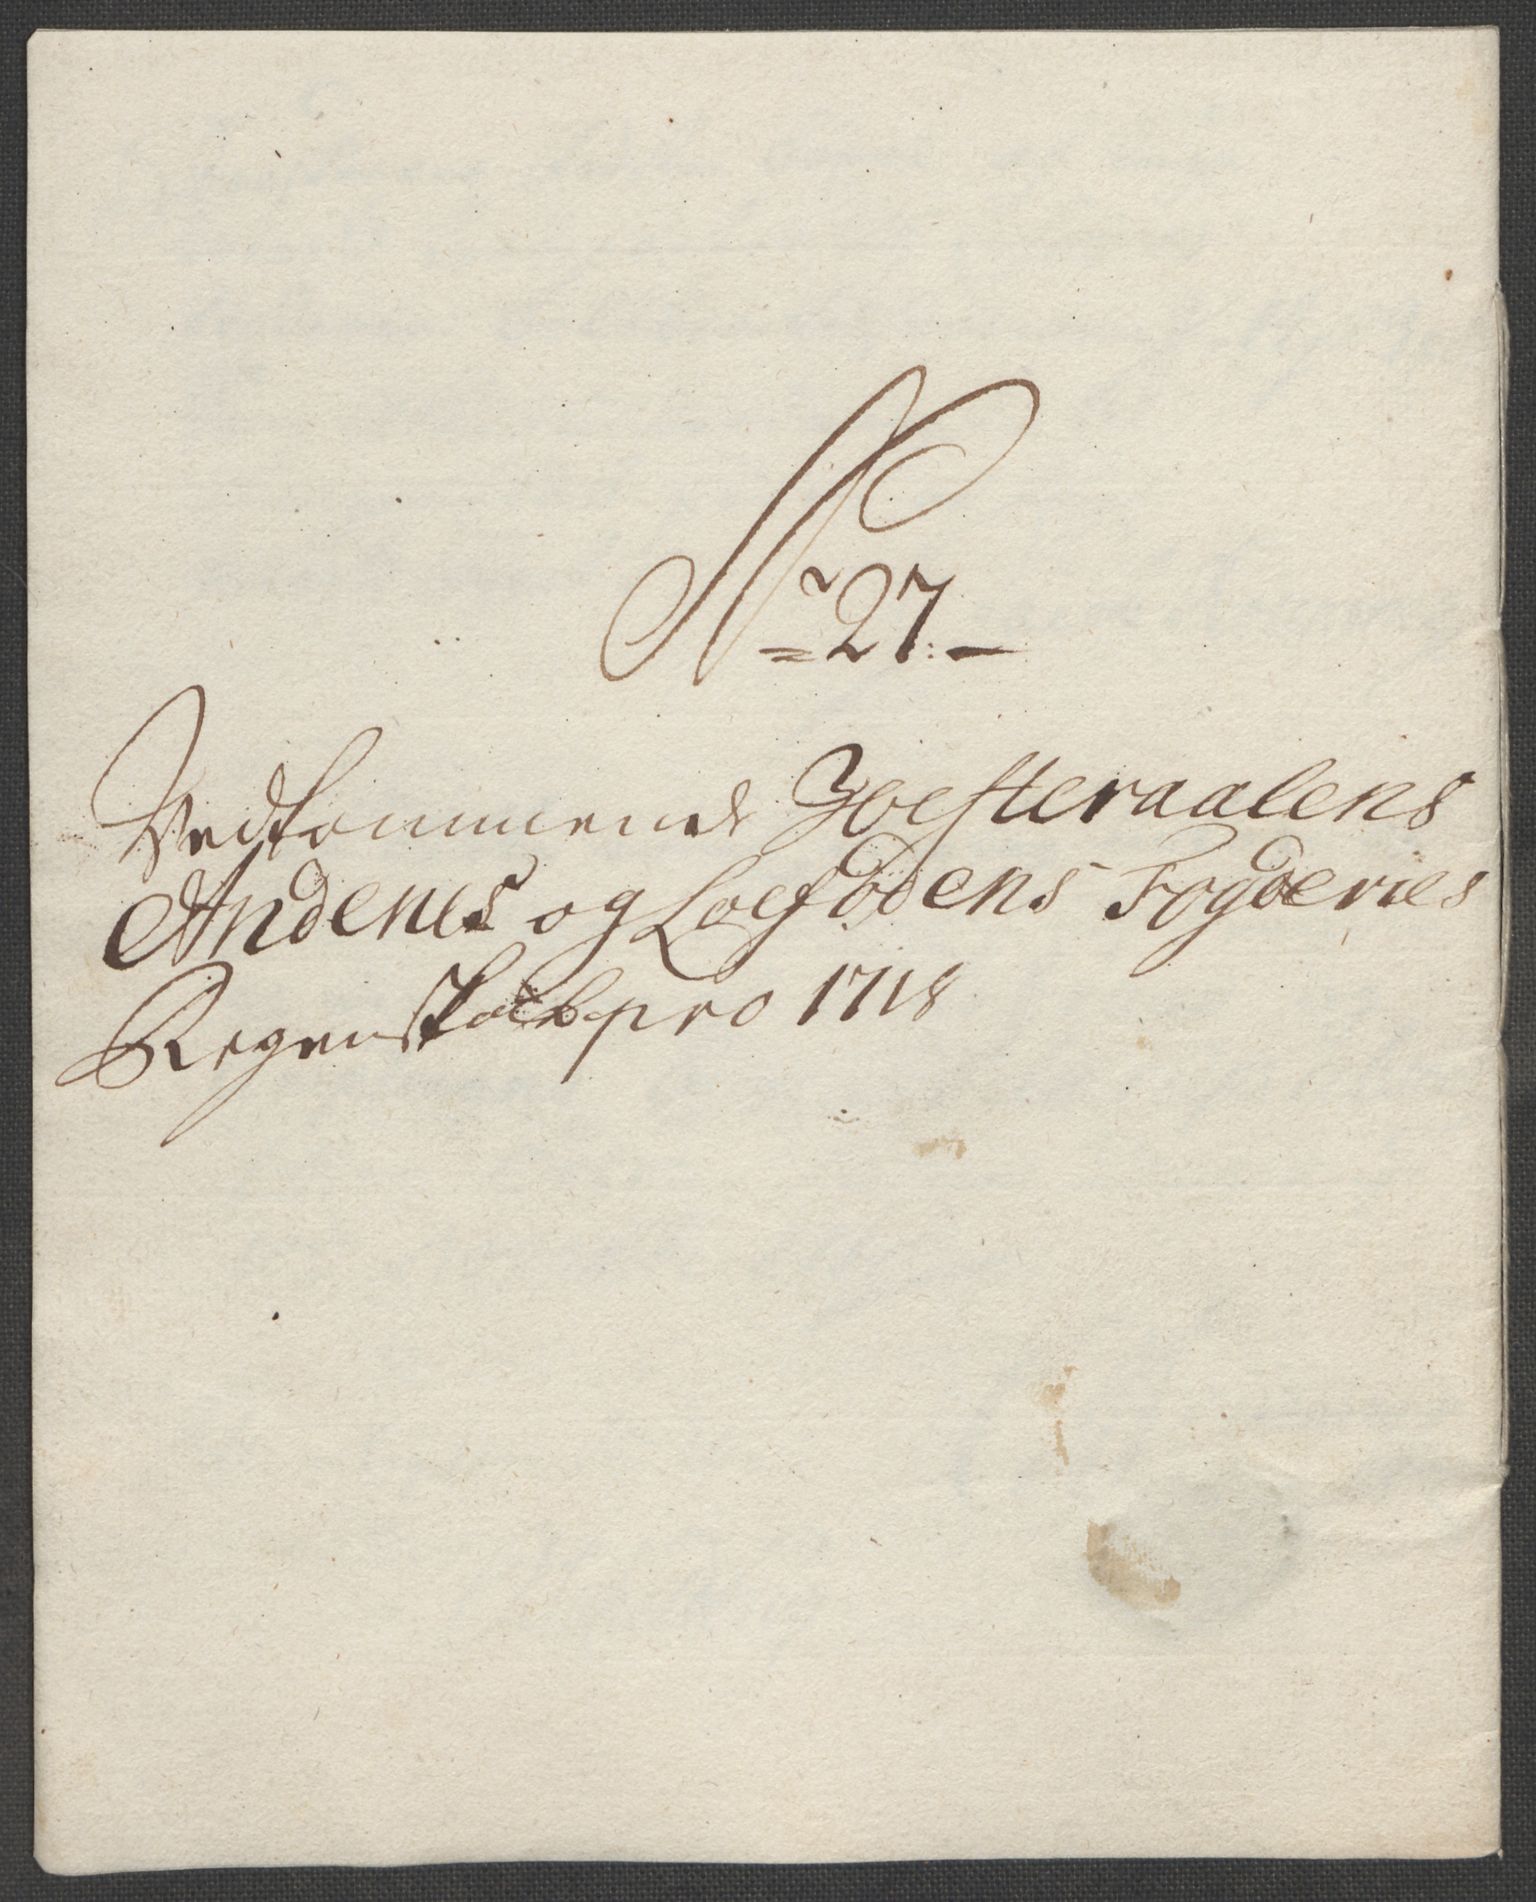 No 27.
Vedkommende Woesteraalens
Andenes og Loefodens Fogderies
Regenskaab pro 1718